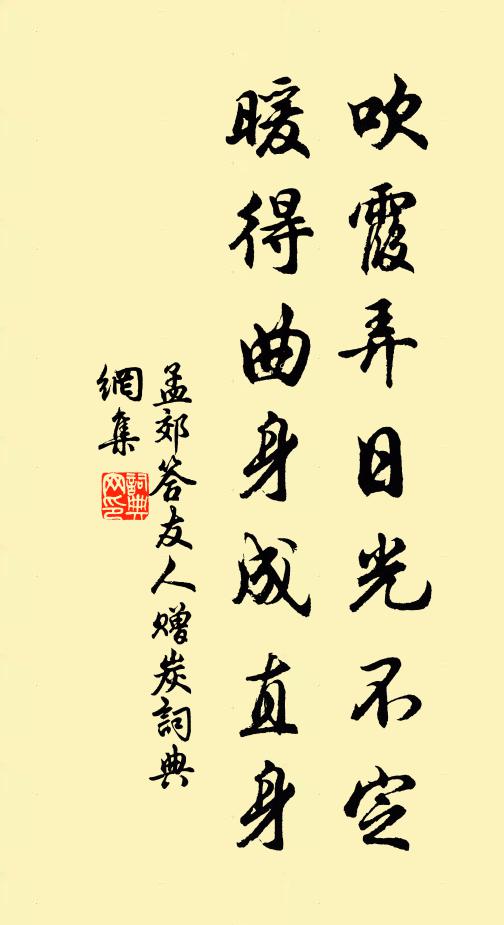 吹霞弄日光不定
暖得曲身成直身
孟郊答友人赠炭詞典
網集
詞典網印